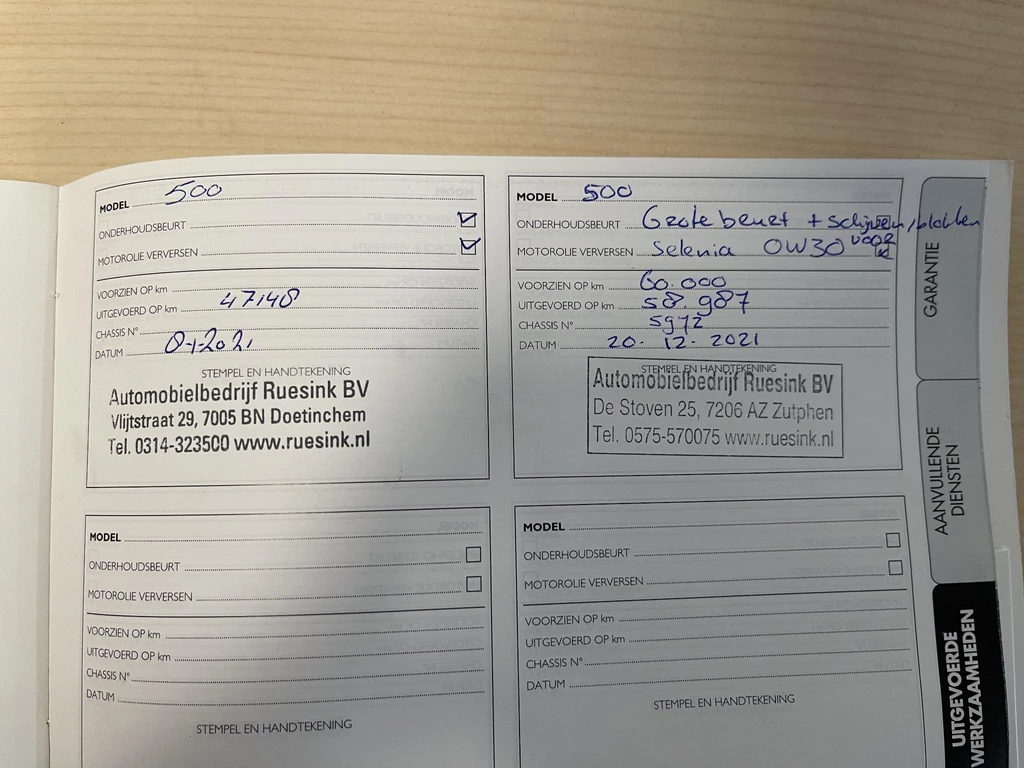 MODEL 500
ONDERHOUDSBEURT
MOTOROLIE VERVERSEN
VOORZIEN OP km
UITGEVOERD OP km 47148
CHASSIS Nº
DATUM 01-2021
STEMPEL EN HANDTEKENING
Automobielbedrijf Ruesink BV
Vlijtstraat 29, 7005 BN Doetinchem
Tel. 0314-323500 www.ruesink.nl
MODEL 500
ONDERHOUDSBEURT Grote beurt + schijven/blokken
MOTOROLIE VERVERSEN Selenia 0W30 voor
VOORZIEN OP km 60.000
UITGEVOERD OP km 58.987
CHASSIS Nº 5972
DATUM 20.12.2021
STEMPEL EN HANDTEKENING
Automobielbedrijf Ruesink BV
De Stoven 25, 7206 AZ Zutphen
Tel. 0575-570075 www.ruesink.nl
MODEL
ONDERHOUDSBEURT
MOTOROLIE VERVERSEN
VOORZIEN OP km
UITGEVOERD OP km
CHASSIS Nº
DATUM
STEMPEL EN HANDTEKENING
MODEL
ONDERHOUDSBEURT
MOTOROLIE VERVERSEN
VOORZIEN OP km
UITGEVOERD OP km
CHASSIS Nº
DATUM
STEMPEL EN HANDTEKENING
GARANTIE
AANVULLENDE
DIENSTEN
UITGEVOERDE
WERKZAAMHEDEN